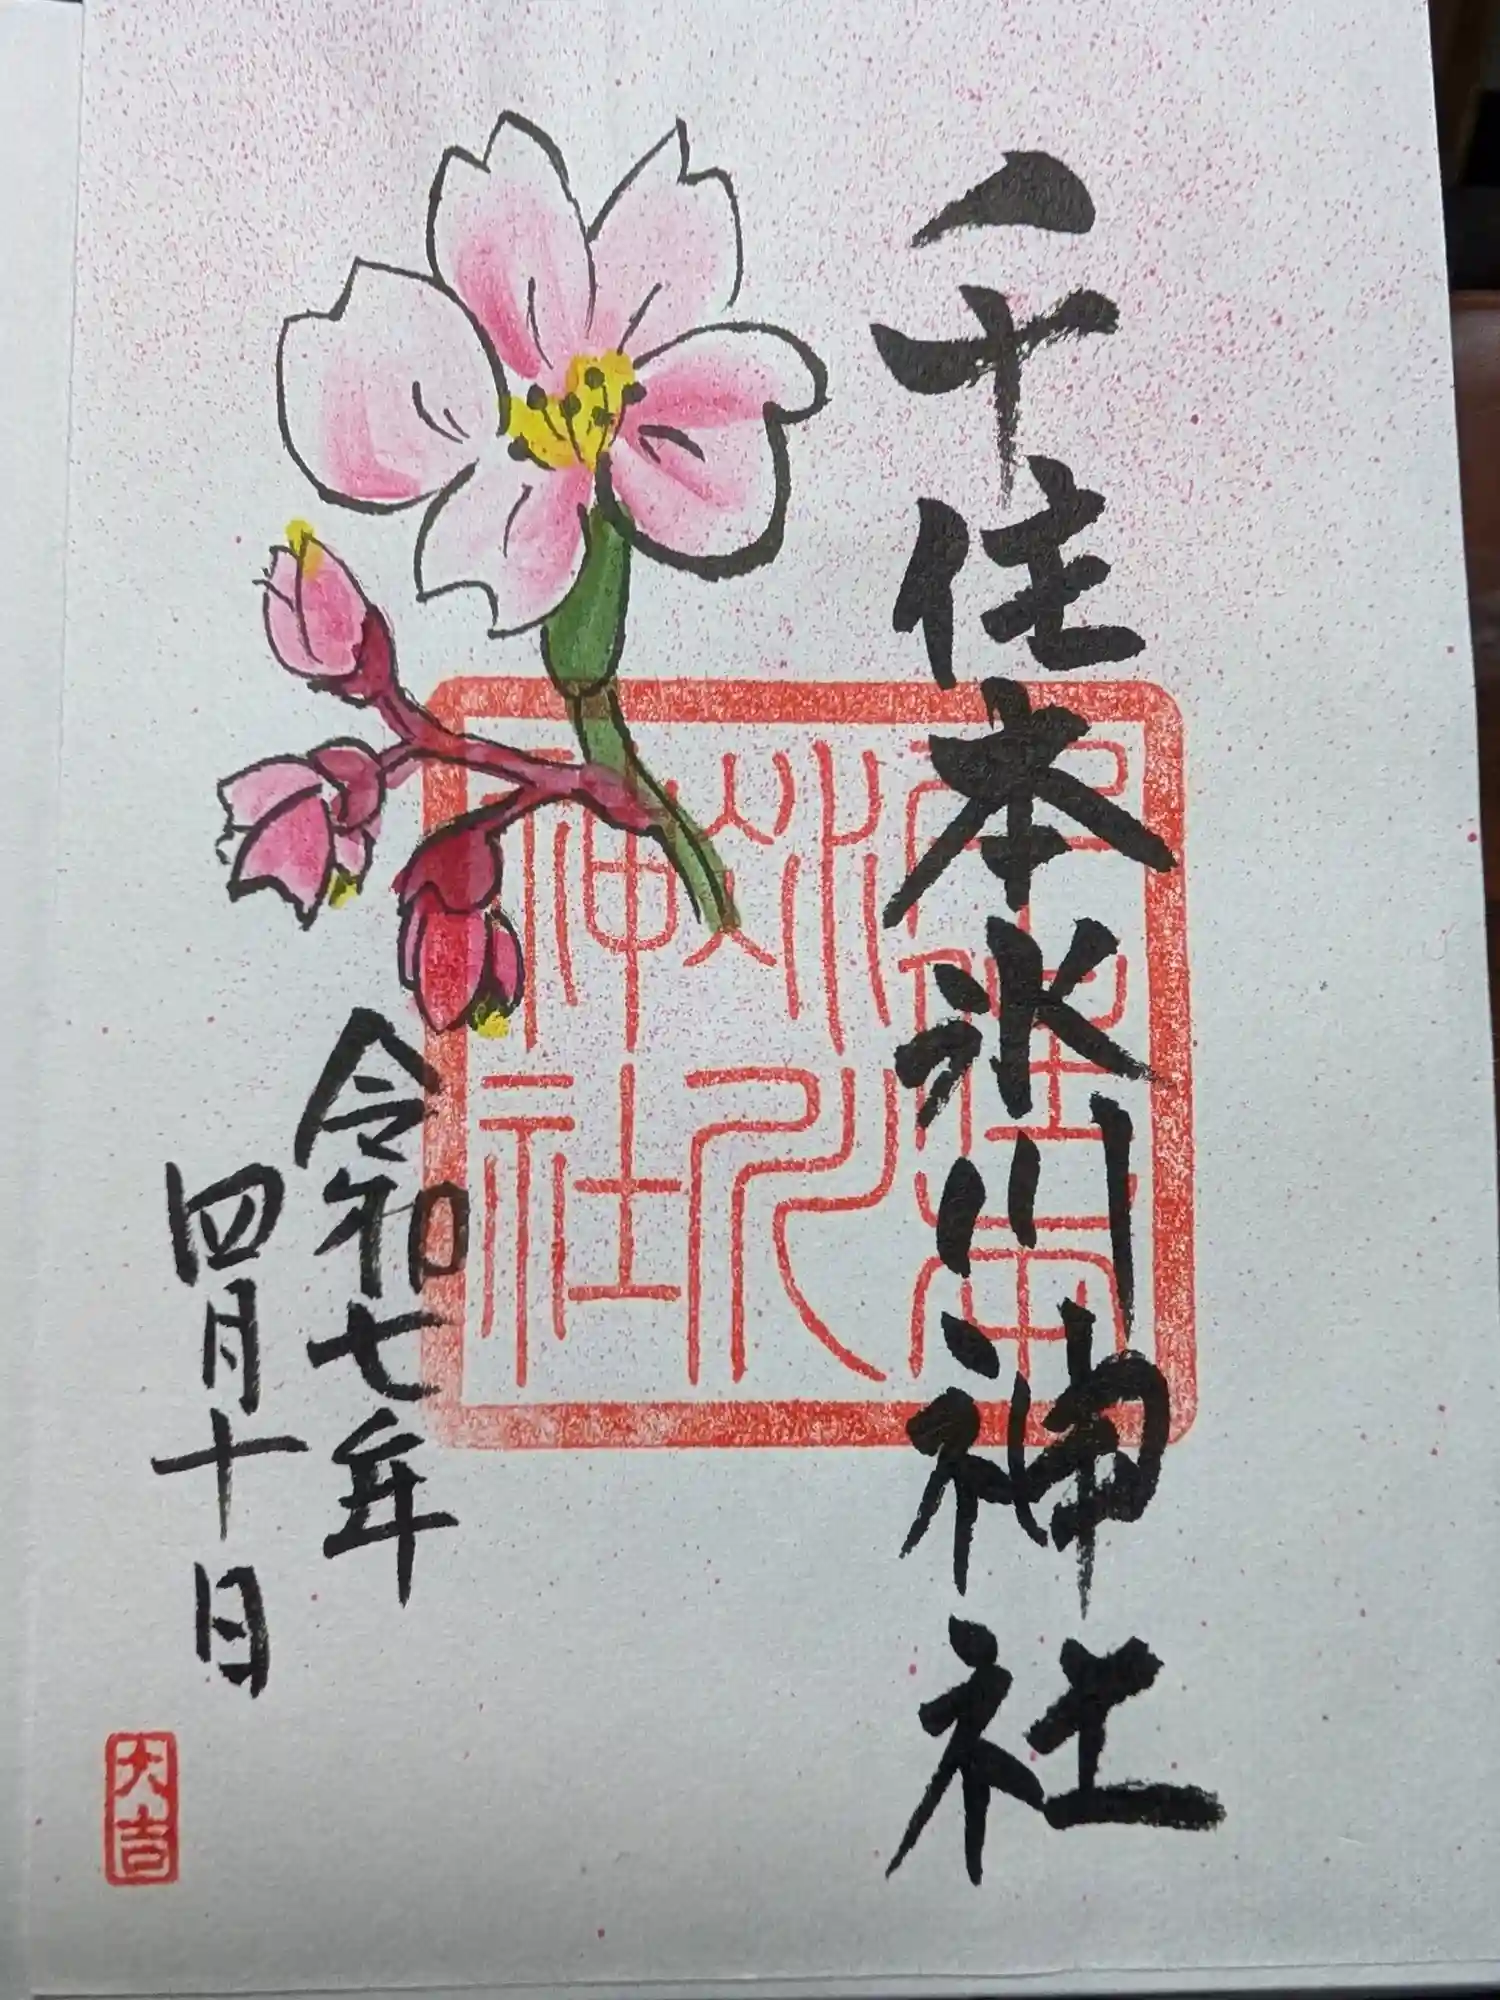 千住本氷川神社
神社
令和七年
四月十日
大吉